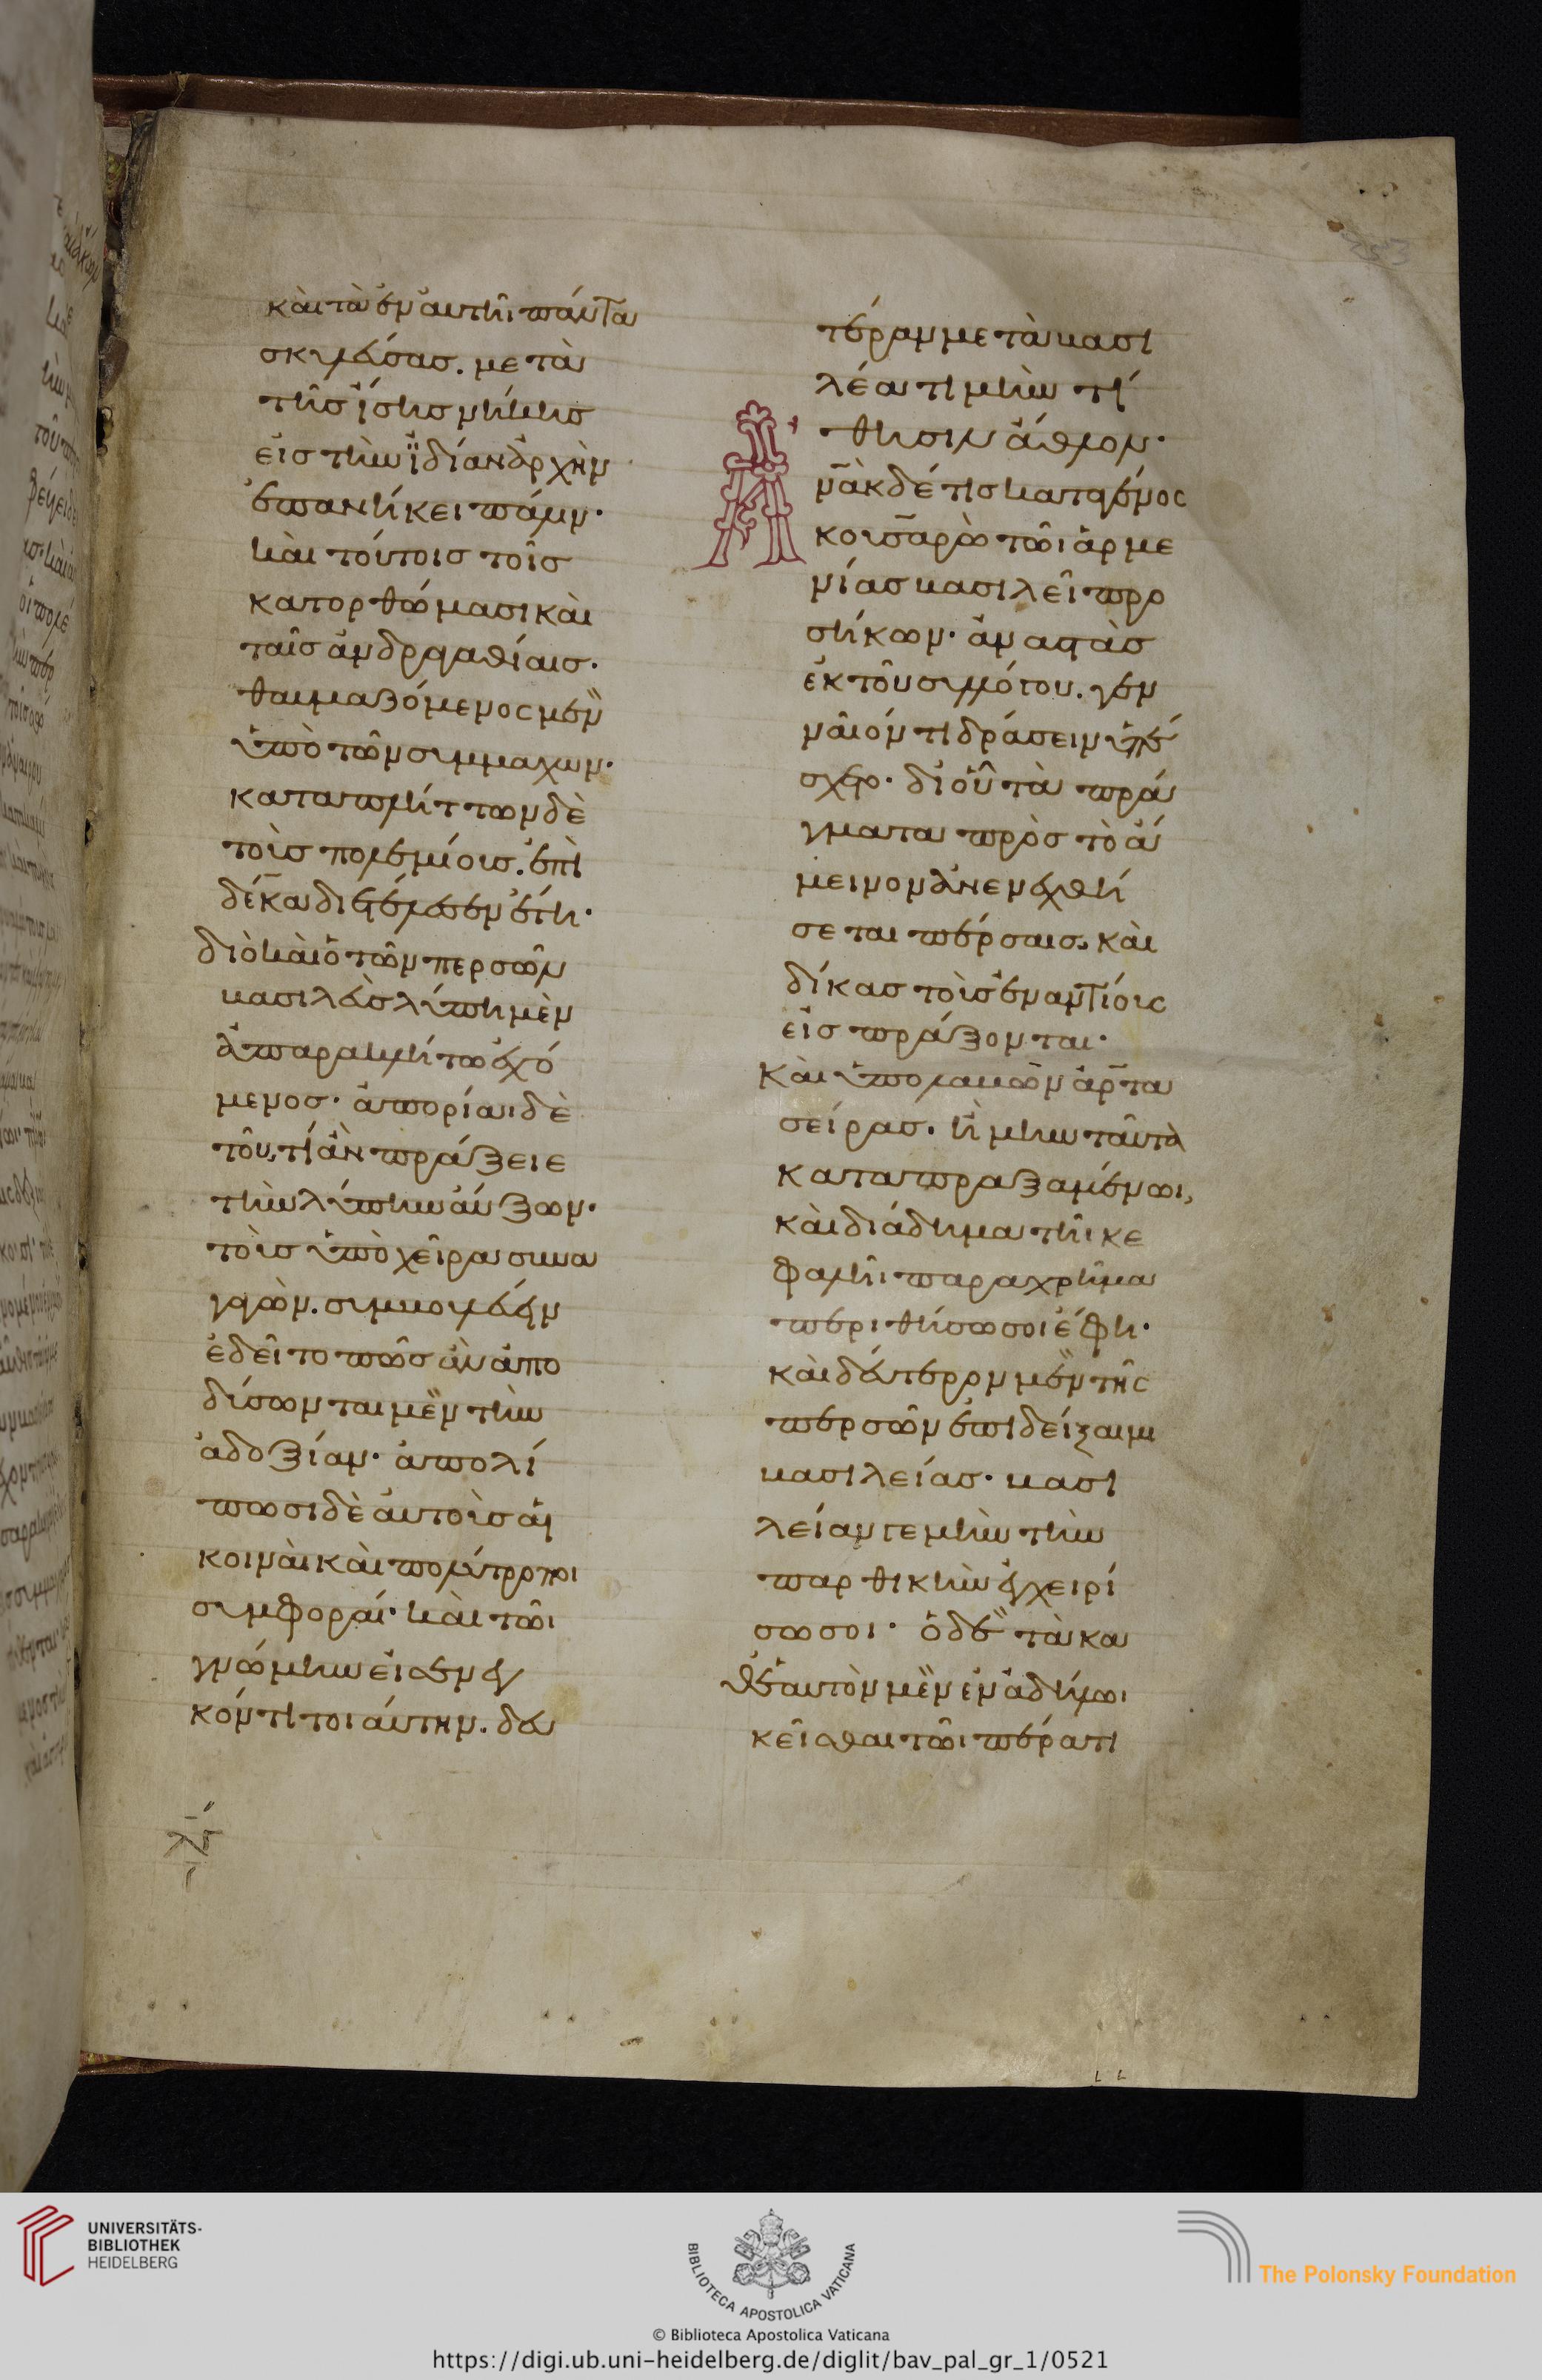 καὶ τὰ ἐν αυτῆι πάντα
σκυλεύσας. μετὰ
τῆς ἴσης νίκης
εἰς τὴν ϊδίαν ἀρχὴν
ἐπανήκει πάλιν·
καὶ τούτοις τοῖς
κατορθώμασι καὶ
ταῖς ἀνδραγαθίαις.
θαυμαζόμενος μὲν
ὑπὸ τῶν συμμαχων.
καταπλήττων δὲ
τοὺς πολεμίους. ἐπὶ
δέκα διετέλεσεν ἔτη·
διὸ καὶ ὁ τῶν περσῶν
βασιλεὺς λύπη μὲν
ἀπαραιτήτω ἐχό
μενος· ἀπορίαι δὲ
τοῦ, τί ἂν πράξειε
τὴν λύπην αὔξων·
τοὺς ὑπὸ χεῖρα συνα
γαγὼν. συμβουλεύειν
ἐδεῖτο πῶς ἂν ἀπο
δύσωνται μὲν τὴν
ἀδοξίαν· ἀπολί
πωσι δὲ αὐτοὺς αἱ
κοιναὶ καὶ πολύτροποι
συμφοραί· καὶ τῶι
γνώμην εἰσενεγ
κόντι τοιάυτην. δευ
τέραν μετὰ βασι
λέα τιμὴν τί
θησιν ἆθλον·
Ανὰκ δέ τις κατ' ἀγένος
κουσαρὼ τῶι ἀρμε
νίας βασιλεῖ προ
σήκων· ἀναστὰς
ἐκ τοῦ συλλόγου. γεν
ναῖόν τι δράσειν ὑπέ
σχετο· δι' οὗ τὰ πρά
γματα πρὸς τὸ ἄ
μεινον ἀνενεχθή
σεται πέρσαις. καὶ
δίκας τοὺς ἐναντίους
εἰσπράξονται·
Καὶ ὑπολαβὼν ἀρτα
σείρας. ἦ μὴν ταῦτα
καταπραξαμένωι,
καὶ διάδημα τῆι κε
φαλῆι παραχρῆμα
περιθήσω σοι ἔφη·
καὶ δεύτερον μὲν τῆς
περσῶν ἐπιδείξαιμι
βασιλείας· βασι
λείαν τε μὴν τὴν
παρθικὴν ἐγχειρί
σω σοι· ὁ δὲ τὰ κα
θ' ἑαυτὸν μὲν ἐν ἀδήλωι
κεῖσθαι τῶι πέρατι
UNIVERSITÄTS-
BIBLIOTHEK
HEIDELBERG
BIBLIOTECA APOSTOLICA VATICANA
The Polonsky Foundation
© Biblioteca Apostolica Vaticana
https://digi.ub.uni-heidelberg.de/diglit/bav_pal_gr_1/0521